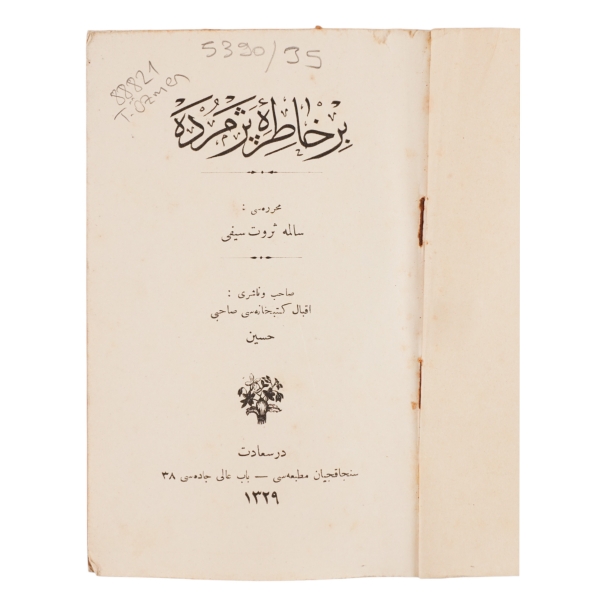 5390/35
88821
T. Özmen
بر خاطرۀ پژمرده
محرره‌سی :
سالمه ثروت سیفی
صاحب و ناشری :
اقبال کتبخانه‌سی صاحبی
حسین
درسعادت
سنجاقجیان مطبعه‌سی — باب عالی جاده‌سی ٣٨
١٣٢٩